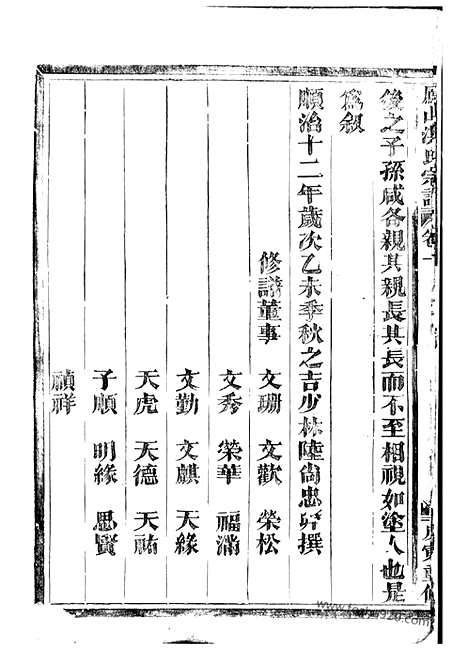 後之子孫咸各親其親長其長而不至相視如塗人也是
爲叙
順治十二年歲次乙未季秋之吉少林陸尚忠 撰
修譜董事 文珊 文歡 榮松
文秀 榮華 福滿
文勤 文麒 天緣
天虎 天德 天祐
子順 明緣 思賢
禎祥